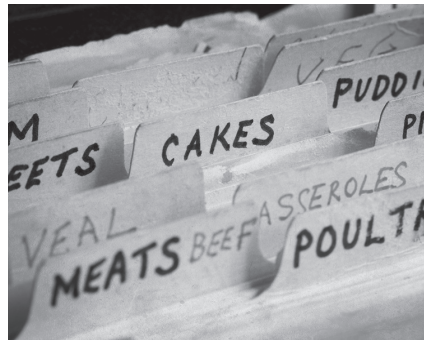 VEG
PUDDI
M
CAKES
PI
EETS
ASSEROLES
VEAL
BEEF
MEATS
POULTR